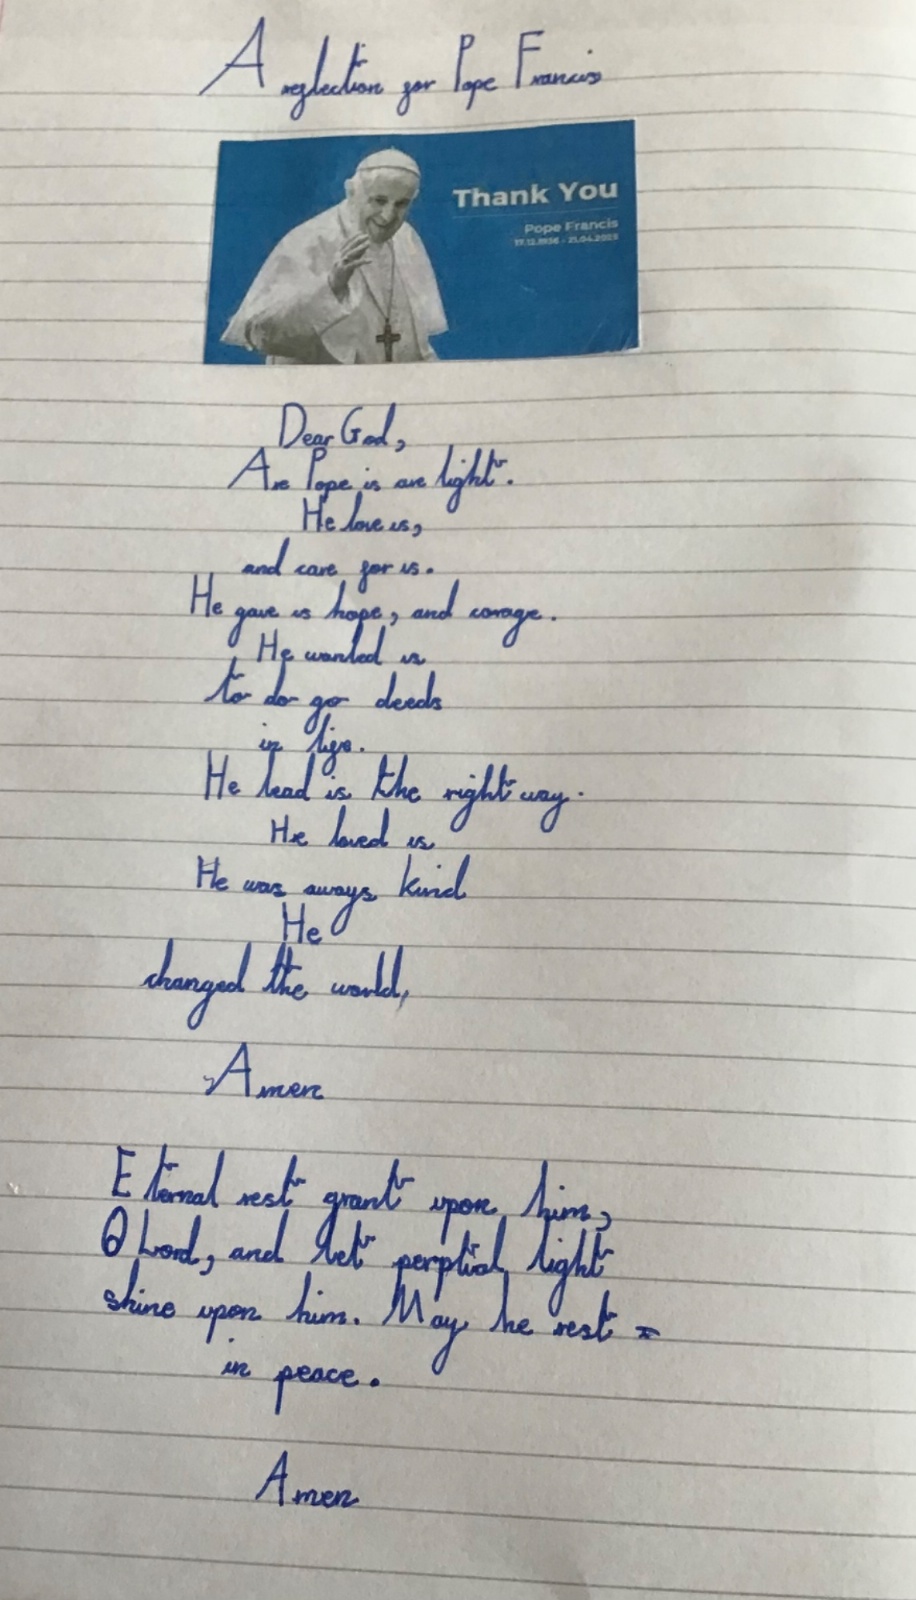 A reflection for Pope Francis
Thank You
Pope Francis
17.12.1936 - 21.04.2025
Dear God,
Are Pope is are light.
He love us,
and care for us.
He gave us hope, and corage.
He wanted us
to do go deeds
in life.
He lead is the right way.
He loved us
He was aways kind
He
changed the world,
Amen
Eternal rest grant upon him,
O Lord, and let perptial light
shine upon him. May he rest
in peace.
Amen